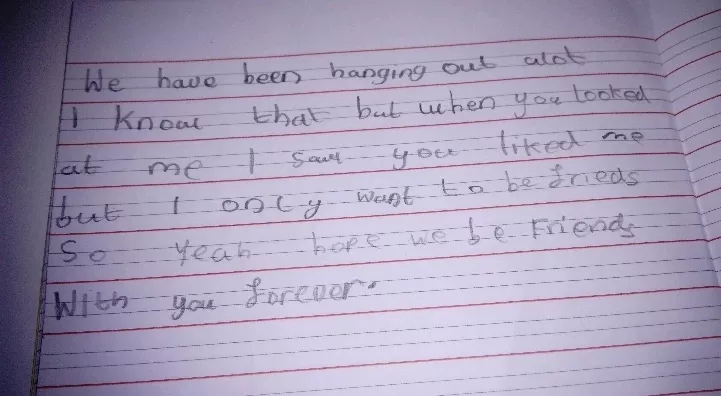 We have been hanging out alot
I know that but when you looked
at me I saw you liked me
but I only want to be frieds
So yeah hope we be Friends
With you forever.